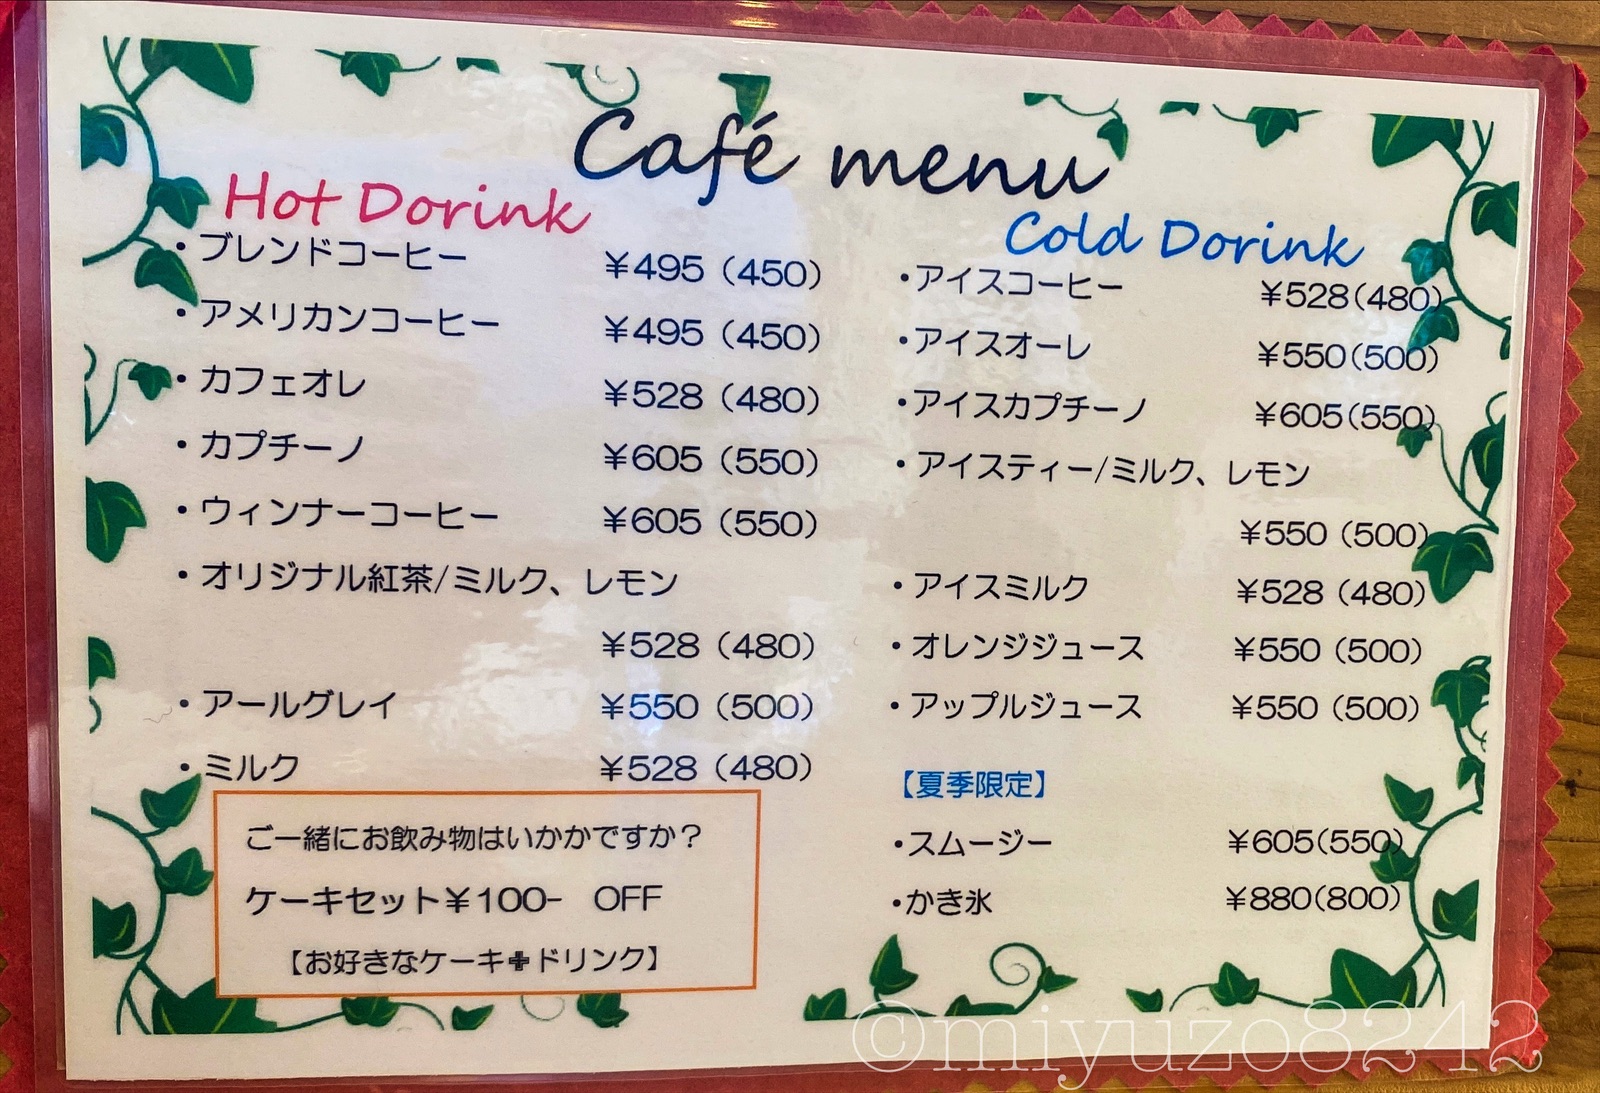 Café menu
Hot Dorink
・ブレンドコーヒー ¥495（450）
・アメリカンコーヒー ¥495（450）
・カフェオレ ¥528（480）
・カプチーノ ¥605（550）
・ウィンナーコーヒー ¥605（550）
・オリジナル紅茶/ミルク、レモン
¥528（480）
・アールグレイ ¥550（500）
・ミルク ¥528（480）
ご一緒にお飲み物はいかかですか？
ケーキセット¥100- OFF
【お好きなケーキ✙ドリンク】
Cold Dorink
・アイスコーヒー ¥528(480)
・アイスオーレ ¥550(500)
・アイスカプチーノ ¥605(550)
・アイスティー/ミルク、レモン
¥550（500）
・アイスミルク ¥528（480）
・オレンジジュース ¥550（500）
・アップルジュース ¥550（500）
【夏季限定】
・スムージー ¥605(550)
・かき氷 ¥880(800)
©miyuzo8242